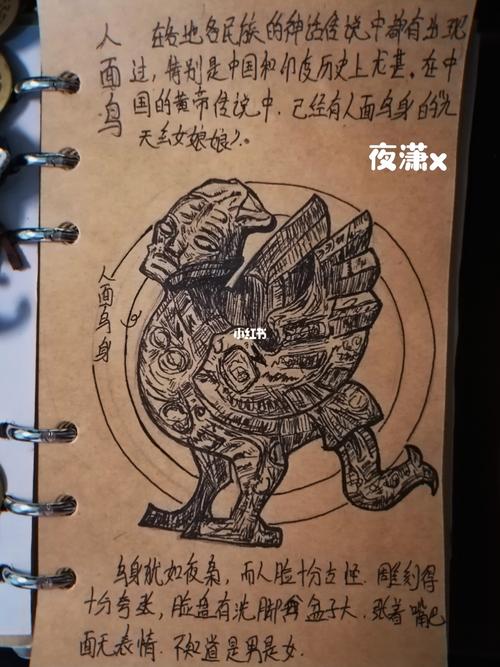 人面鸟
在各地各民族的神话传说中都有出现
过，特别是中国和印度历史上尤甚。在中
国的黄帝传说中，已经有人面鸟身的《九
天玄女娘娘》。
夜潇x
人面鸟身
小红书
鸟身犹如夜枭，而人脸十分古怪，雕刻得
十分夸张，脸盘有洗脚盆子大，张着嘴巴
面无表情，不知道是男是女.